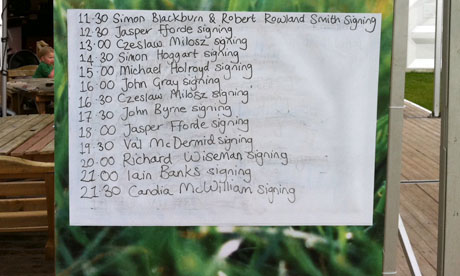 11-30 Simon Blackburn & Robert Rowland Smith signing
12 30 Jasper Fforde signing
13 00 Czeslaw Milosz signing
14 30 Simon Hoggart signing
15 00 Michael Holroyd signing
16 00 John Gray signing
16 30 Czeslaw Milosz signing
17 30 John Byrne signing
18 00 Jasper Fforde signing
19 30 Val McDermid signing
20 00 Richard Wiseman signing
21 00 Iain Banks signing
21 30 Candia McWilliam signing